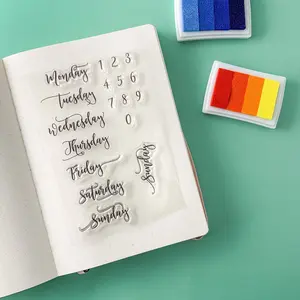 Monday 1 2 3
Tuesday 4 5 6
7 8 9
Wednesday 0
Thursday
Friday
Saturday
Sunday